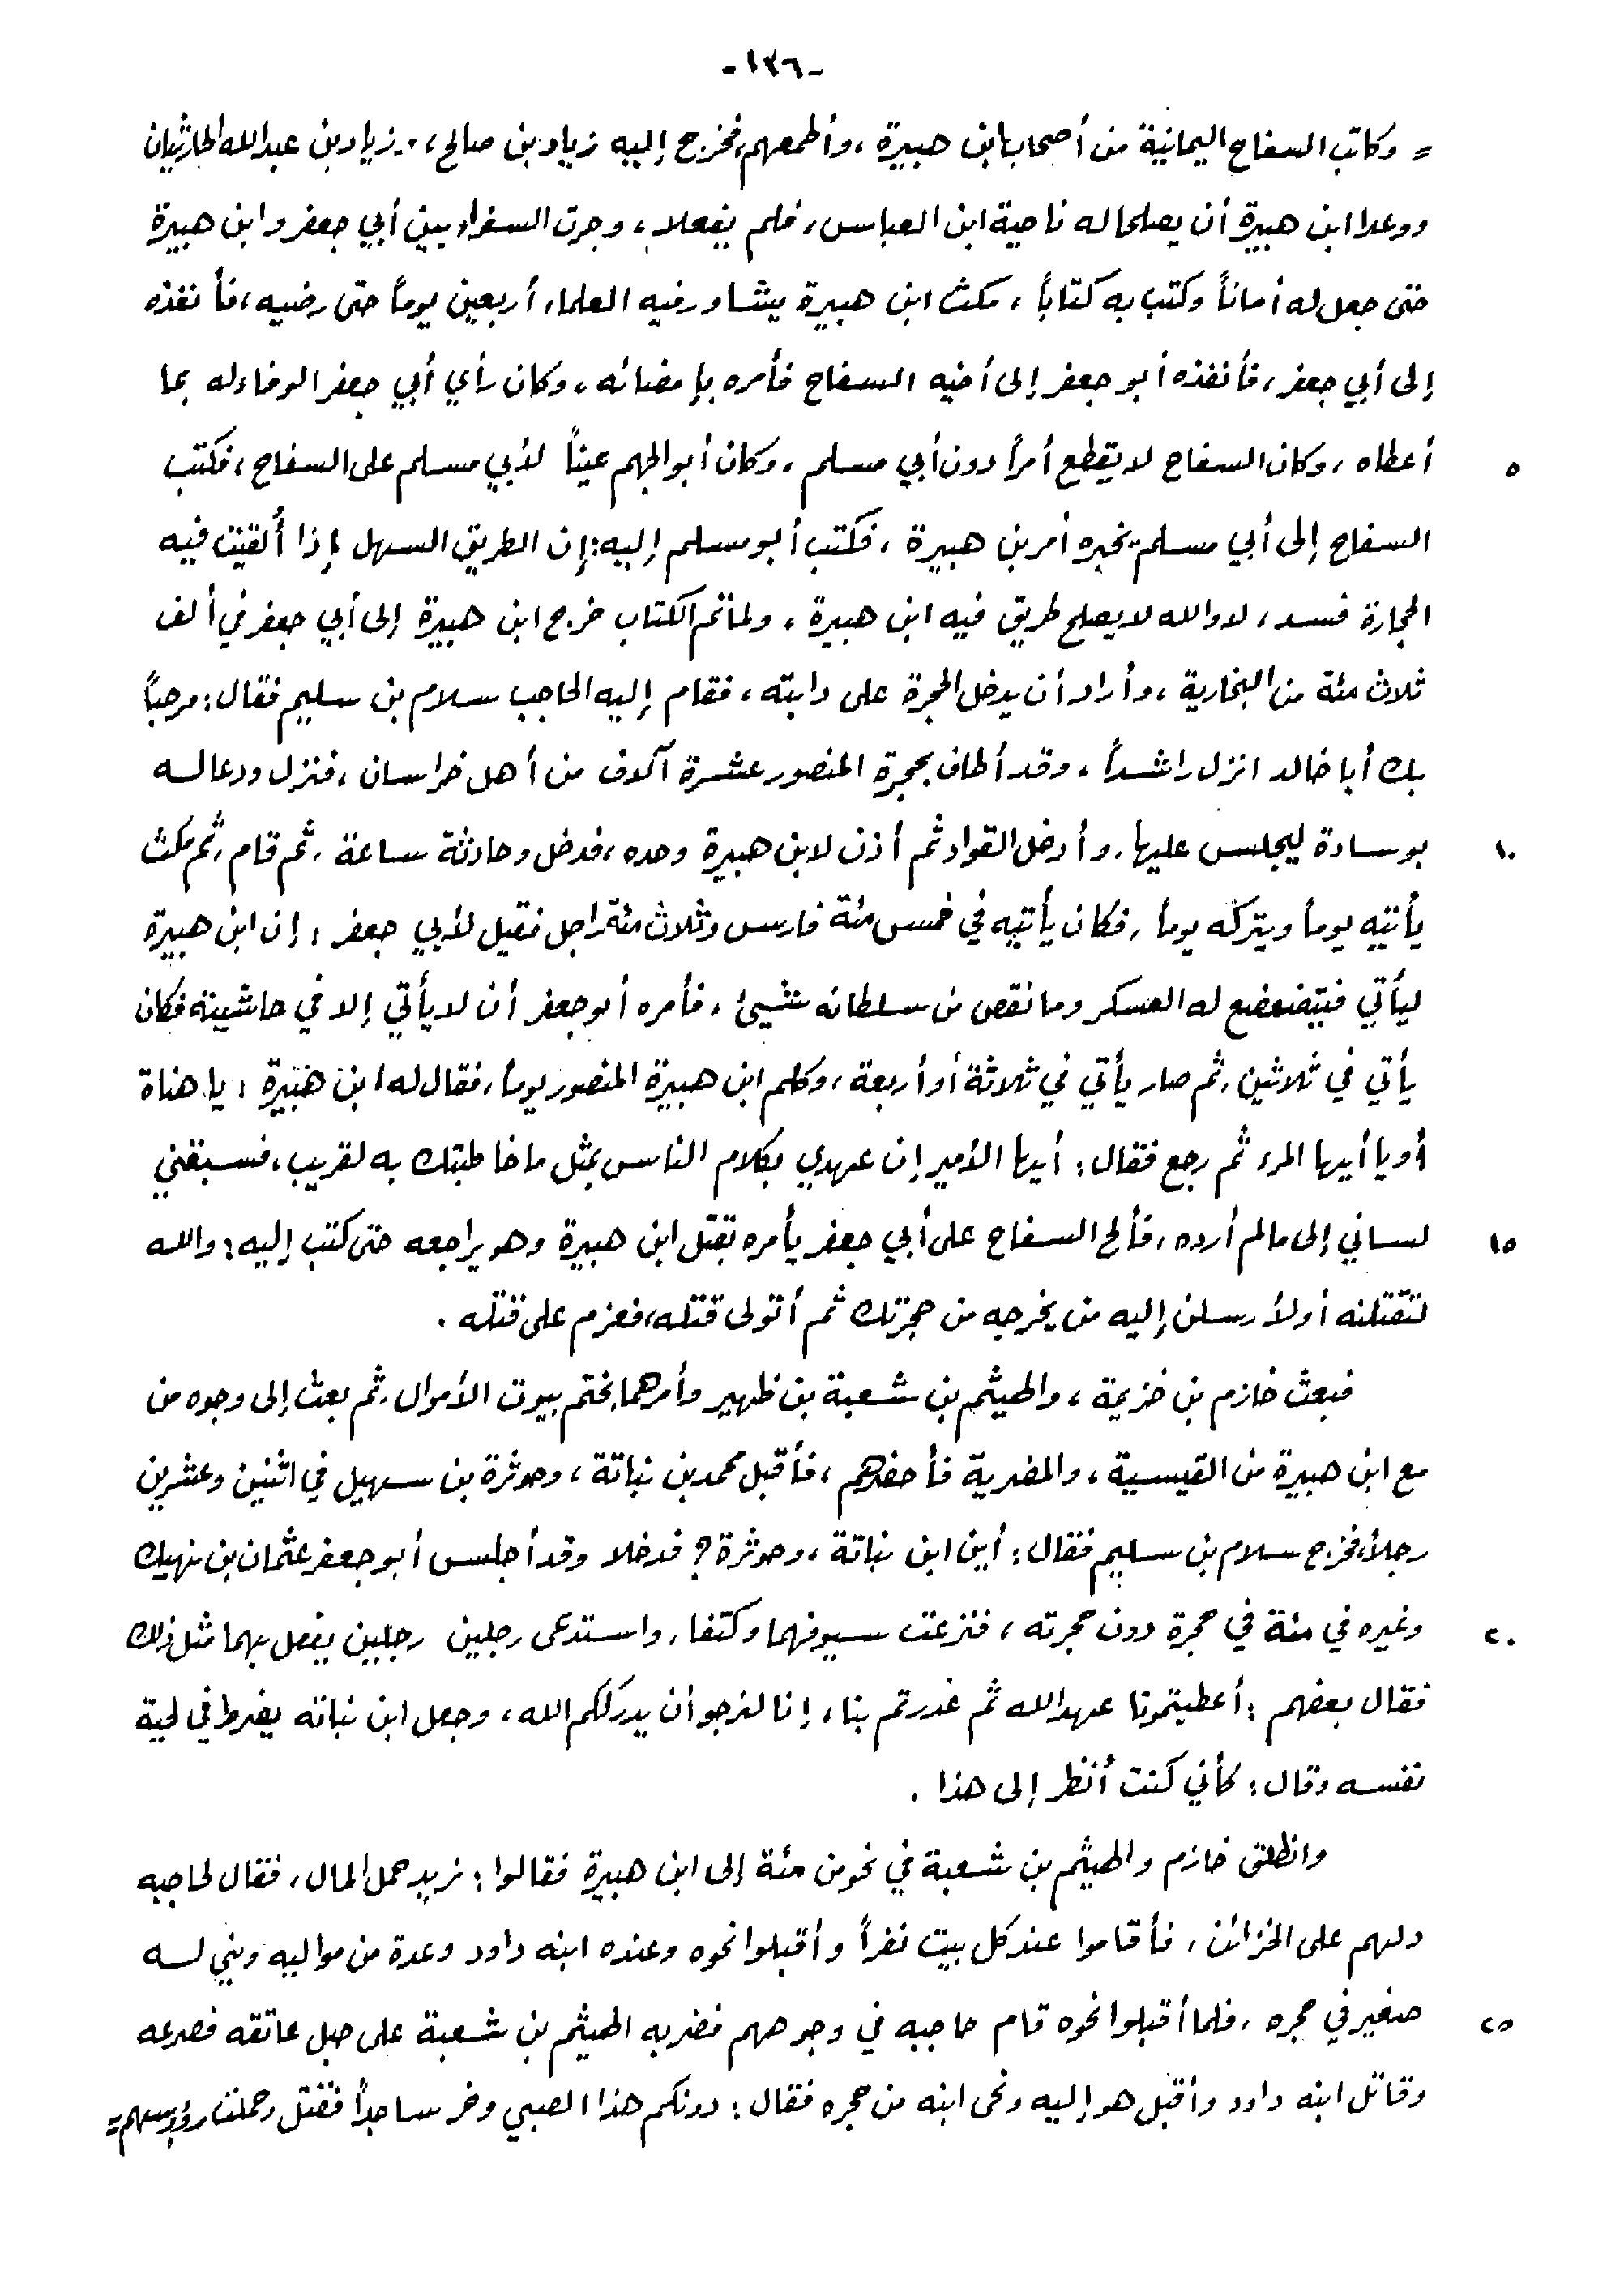 -١٣٦-
= وكاتب السفاح اليمانية من أصحاب ابن هبيرة ، وأطمعهم، فخرج إليه زياد بن صالح ، وزياد بن عبدالله الحارثيان
ووعدا ابن هبيرة أن يصلحا له ناحية ابن العباس ، فلم يفعلا ، وجرت السفراء بين أبي جعفر وابن هبيرة
حتى جعل له أماناً وكتب به كتاباً ، مكث ابن هبيرة يشاور فيه العلماء أربعين يوماً حتى رضيه ، فأنفذه
إلى أبي جعفر ، فأنفذه أبو جعفر إلى أخيه السفاح فأمره بإمضائه ، وكان رأي أبي جعفر الوفاء له بما
أعطاه ، وكان السفاح لا يقطع أمراً دون أبي مسلم ، وكان أبو الجهم عيناً لأبي مسلم على السفاح ، فكتب ٥
السفاح إلى أبي مسلم يخبره أمر بن هبيرة ، فكتب أبو مسلم إليه : إن الطريق السهل إذا أُلقيت فيه
الحجارة فسد ، لا والله لا يصلح طريق فيه ابن هبيرة ، ولما تم الكتاب خرج ابن هبيرة إلى أبي جعفر في ألف
ثلاث مئة من البخارية ، وأراد أن يدخل الحجرة على دابته ، فقام إليه الحاجب سلام بن سليم فقال : مرحباً
بك أبا خالد انزل راشداً ، وقد أطاف بحجرة المنصور عشرة آلاف من أهل خراسان ، فنزل ودعا له
بوسادة ليجلس عليها ، وأدخل القواد ثم أذن لابن هبيرة وحده ، فدخل وحادثه ساعة ، ثم قام ، ثم مكث ١٠
يأتيه يوماً ويتركه يوماً ، فكان يأتيه في خمس مئة فارس وثلاث مئة راجل فقيل لأبي جعفر : إن ابن هبيرة
ليأتي فيتضعضع له العسكر وما نقص من سلطانه شيئ ، فأمره أبو جعفر أن لا يأتي إلا في حاشيته فكان
يأتي في ثلاثين ، ثم صار يأتي في ثلاثة أو أربعة ، وكلم ابن هبيرة المنصور يوماً ، فقال له ابن هبيرة : يا هناة
أو يا أيها المرء ثم رجع فقال : أيها الأمير إن عهدي بكلام الناس بمثل ما خاطبتك به لقريب ، فسبقني
لساني إلى مالم أرده ، فألح السفاح على أبي جعفر يأمره بقتل ابن هبيرة وهو يراجعه حتى كتب إليه : والله ١٥
لتقتلنه أو لأرسلن إليه من يخرجه من حجرتك ثم أتولى قتله، فعزم على قتله .
فبعث خازم بن خزيمة ، والهيثم بن شعبة بن ظهير وأمرهما بختم بيوت الأموال ، ثم بعث إلى وجوه من
مع ابن هبيرة من القيسية ، والمضرية فأحضرهم ، فأقبل محمد بن نباتة ، وحوثرة بن سهيل في اثنين وعشرين
رجلاً، فخرج سلام بن سليم فقال : أين ابن نباتة ، وحوثرة ؟ فدخلا وقد أجلس أبو جعفر عثمان بن نهيك
وغيره في مئة في حجرة دون حجرته ، فنزعت سيوفهما وكتفا ، واستدعى رجلين رجلين يفعل بهما مثل ذلك ٢٠
فقال بعضهم : أعطيتمونا عهد الله ثم غدرتم بنا ، إنا لنرجو أن يدرككم الله ، وجعل ابن نباته يضرط في لحية
نفسه وقال : كأني كنت أنظر إلى هذا .
وانطلق خازم والهيثم بن شعبة في نحو من مئة إلى ابن هبيرة فقالوا : نريد حمل المال ، فقال لحاجبه
دلهم على الخزائن ، فأقاموا عند كل بيت نفراً وأقبلوا نحوه وعنده ابنه داود وعدة من مواليه وبني له
صغير في حجره ، فلما أقبلوا نحوه قام حاجبه في وجوههم فضربه الهيثم بن شعبة على حبل عاتقه فصرعه ٢٥
وقاتل ابنه داود وأقبل هو إليه ونحى ابنه من حجره فقال : دونكم هذا الصبي وخر ساجداً فقتل وحملت رؤوسهم =